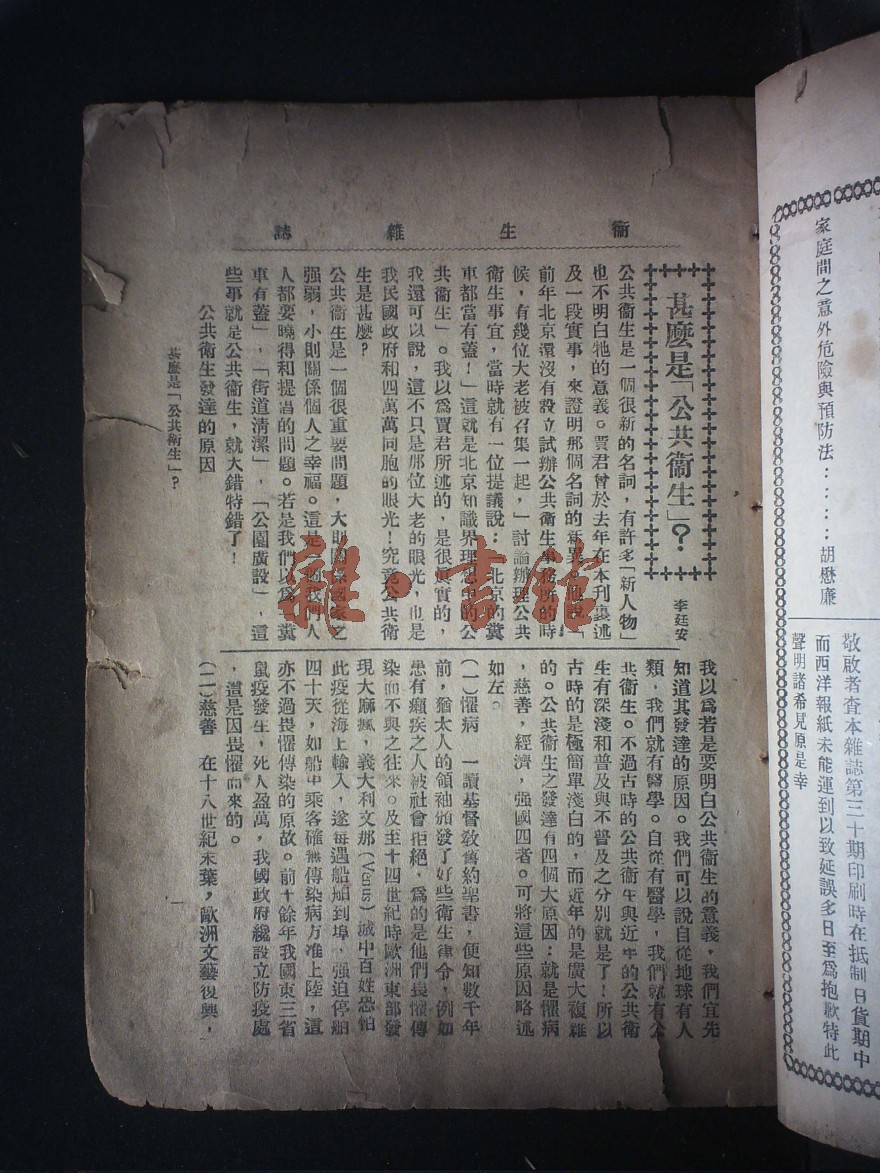 衞生雜誌
甚麽是「公共衞生」?
李廷安
公共衞生是一個很新的名詞，有許多「新人物」
也不明白牠的意義。賈君曾於去年在本刋裏述
及一段實事，來證明那個名詞的新異。他說「
前年北京還沒有設立試辦公共衞生事務所的時
候，有幾位大老被召集一起，」討論辦理公共
衞生事宜，當時就有一位提議說：「北京的糞
車都當有蓋！」這就是北京知識界理想中的公
共衞生」。我以爲賈君所述的，是很眞實的，
我還可以說，這不只是那位大老的眼光，也是
我民國政府和四萬萬同胞的眼光！究竟公共衞
生是甚麽?
公共衞生是一個很重要問題，大則關係國家之
强弱，小則關係個人之幸福。這是一個我們人
人都要曉得和提倡的問題。若是我們以爲「糞
車有蓋」，「街道清潔」，「公園廣設」，這
些事就是公共衞生，就大錯特錯了！
公共衞生發達的原因
我以爲若是要明白公共衞生的意義，我們宜先
知道其發達的原因。我們可以說自從地球有人
類，我們就有醫學。自從有醫學，我們就有公
共衞生。不過古時的公共衞生與近年的公共衞
生有深淺和普及與不普及之分別就是了！所以
古時的是極簡單淺白的，而近年的是廣大複雜
的。公共衞生之發達有四個大原因：就是懼病
，慈善，經濟，强國四者。可將這些原因略述
如左。
(一)懼病　一讀基督敎舊約聖書，便知數千年
前，猶太人的領袖頒發了好些衞生律令，例如
患有癩疾之人被社會拒絕，爲的是他們畏懼傳
染而不與之往來。及至十四世紀時歐洲東部發
現大麻瘋，義大利文那(Venus)城中百姓恐怕
此疫從海上輸入，遂每遇船舶到埠，强迫停船
四十天，如船中乘客確無傳染病方准上陸，這
亦不過畏懼傳染的原故。前十餘年我國東三省
鼠疫發生，死人盈萬，我國政府纔設立防疫處
，這是因畏懼而來的。
(二)慈善　在十八世紀末葉，歐洲文藝復興，
甚麽是「公共衞生」?
一
家庭間之意外危險與預防法：：：：胡懋廉
敬啟者查本雜誌第三十期印刷時在抵制日貨期中
而西洋報紙未能運到以致延誤多日至爲抱歉特此
聲明諸希見原是幸
雜·書館